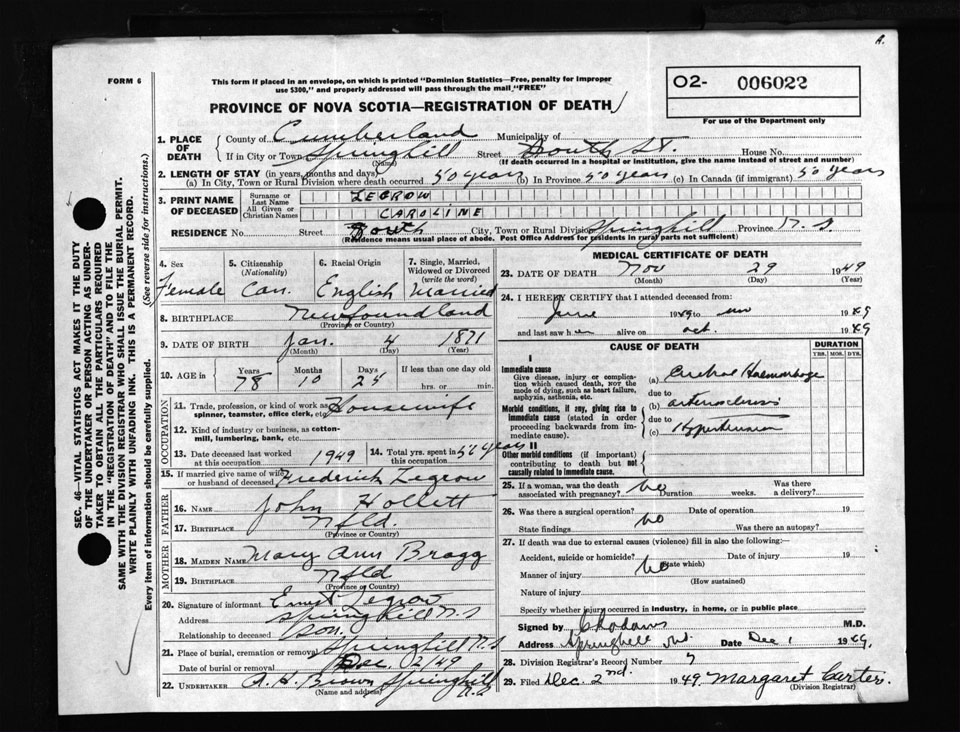 A.
FORM 6
This form if placed in an envelope, on which is printed "Dominion Statistics—Free, penalty for improper
use $300," and properly addressed will pass through the mail "FREE"
O2- 006022
For use of the Department only
PROVINCE OF NOVA SCOTIA—REGISTRATION OF DEATH
1. PLACE OF DEATH County of Cumberland Municipality of
If in City or Town Springhill Street South St. House No.
(Name) (If death occurred in a hospital or institution, give the name instead of street and number)
2. LENGTH OF STAY (in years, months and days)
(a) In City, Town or Rural Division where death occurred 50 years (b) In Province 50 years (c) In Canada (if immigrant) 50 years
3. PRINT NAME OF DECEASED Surname or Last Name LEGROW
All Given or Christian Names CAROLINE
RESIDENCE No. Street South City, Town or Rural Division Springhill Province N.S.
(Residence means usual place of abode. Post Office Address for residents in rural parts not sufficient)
4. Sex Female
5. Citizenship (Nationality) Can.
6. Racial Origin English
7. Single, Married, Widowed or Divorced (write the word) Married
8. BIRTHPLACE Newfoundland
(Province or Country)
9. DATE OF BIRTH Jan. 4 1871
(Month) (Day) (Year)
10. AGE in Years 78 Months 10 Days 25 If less than one day old
hrs. or min.
OCCUPATION
11. Trade, profession, or kind of work as spinner, teamster, office clerk, etc. Housewife
12. Kind of industry or business, as cotton-mill, lumbering, bank, etc.
13. Date deceased last worked at this occupation 1949
14. Total yrs. spent in this occupation years
15. If married give name of wife or husband of deceased Frederick Legrow
FATHER
16. Name John Hollett
17. BIRTHPLACE Nfld.
(Province or Country)
MOTHER
18. MAIDEN NAME Mary Ann Bragg
19. BIRTHPLACE Nfld
(Province or Country)
20. Signature of informant Ernest Legrow
Address Springhill N.S
Relationship to deceased son.
21. Place of burial, cremation or removal Springhill N.S
Date of burial or removal Dec. 2/49
22. UNDERTAKER A.H. Brown Springhill N.S
(Name and address)
MEDICAL CERTIFICATE OF DEATH
23. DATE OF DEATH Nov 29 1949
(Month) (Day) (Year)
24. I HEREBY CERTIFY that I attended deceased from:
June 1949 to nov 1949
and last saw her alive on oct. 1949
CAUSE OF DEATH
DURATION
YRS. MOS. DYS.
I
Immediate cause
Give disease, injury or complication which caused death, NOT the mode of dying, such as heart failure, asphyxia, asthenia, etc.
(a) Cerebral Haemorrhage
due to
Morbid conditions, if any, giving rise to immediate cause (stated in order proceeding backwards from immediate cause).
(b) arteriosclerosis
due to
(c) Hypertension
II
Other morbid conditions (if important) contributing to death but not causally related to immediate cause.
25. If a woman, was the death associated with pregnancy? No Duration weeks. Was there a delivery?
26. Was there a surgical operation? No Date of operation 19
State findings Was there an autopsy?
27. If death was due to external causes (violence) fill in also the following:—
Accident, suicide or homicide? No Date of injury 19
(State which)
Manner of injury
(How sustained)
Nature of injury
Specify whether injury occurred in industry, in home, or in public place
Signed by M.D.
Address Springhill Date Dec 1 1949.
28. Division Registrar's Record Number 7
29. Filed Dec. 2nd. 1949. Margaret Carter.
(Division Registrar)
SEC. 46—VITAL STATISTICS ACT MAKES IT THE DUTY
OF THE UNDERTAKER OR PERSON ACTING AS UNDER-
TAKER TO OBTAIN ALL THE PARTICULARS REQUIRED
IN THE "REGISTRATION OF DEATH" AND TO FILE THE
SAME WITH THE DIVISION REGISTRAR WHO SHALL ISSUE THE BURIAL PERMIT.
WRITE PLAINLY WITH UNFADING INK. THIS IS A PERMANENT RECORD.
Every item of information should be carefully supplied. (See reverse side for instructions.)